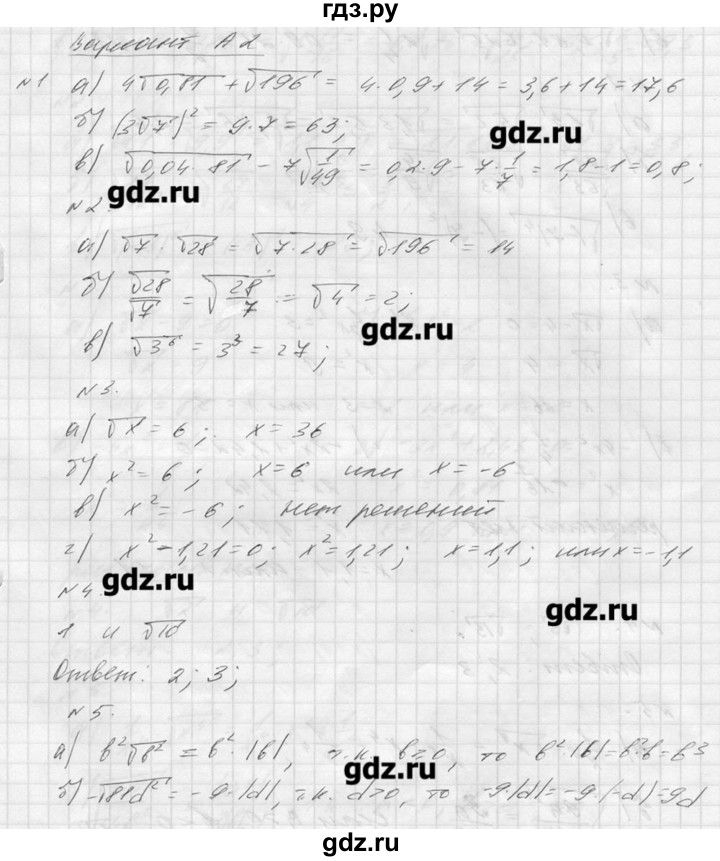 гдз.ру
Вариант А2
№1 а) 4√0,81 + √196 = 4·0,9+14 = 3,6+14=17,6
б) (3√7)² = 9·7 = 63;
gdz.ru
в) √0,04·81 - 7√1/49 = 0,2·9 - 7·1/7 = 1,8-1=0,8;
gdz.ru
№2.
а) √7·√28 = √7·28 = √196 = 14
б) √28/√7 = √28/7 = √4 = 2;
gdz.ru
в) √3⁶ = 3³ = 27;
№3.
а) √x = 6; x = 36
б) x² = 6; x=6 или x = -6
в) x² = -6; нет решений
г) x²-1,21=0; x²=1,21; x=1,1; или x=-1,1
gdz.ru
№4.
gdz.ru
1 и √10
Ответ: 2; 3;
№5.
а) b²√b² = b²·|b|, т.к. b≥0, то b²·|b|=b²·b=b³
gdz.ru
б) -√81d² = -9·|d|, т.к. d>0, то -9·|d|=-9·(-d)=9d
gdz.ru